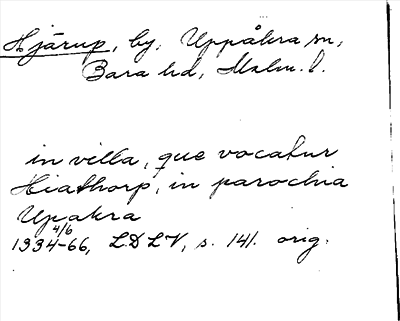 Hjärup, by, Uppåkra sn,
Bara hd, Malm. l.
in villa, que vocatur
Hiathorp, in parochia
Upakra
4/6
1334-66, LDLV, s. 141. orig.